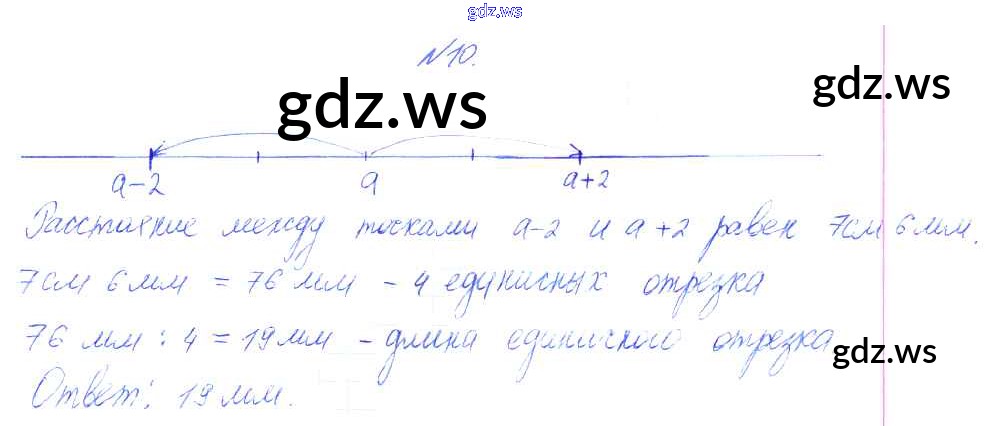 gdz.ws
№10.
gdz.ws
gdz.ws
a-2 a a+2
Расстояние между точками a-2 и a+2 равен 7см 6мм.
7см 6мм = 76 мм - 4 единичных отрезка
76 мм : 4 = 19 мм - длина единичного отрезка
gdz.ws
Ответ: 19 мм.